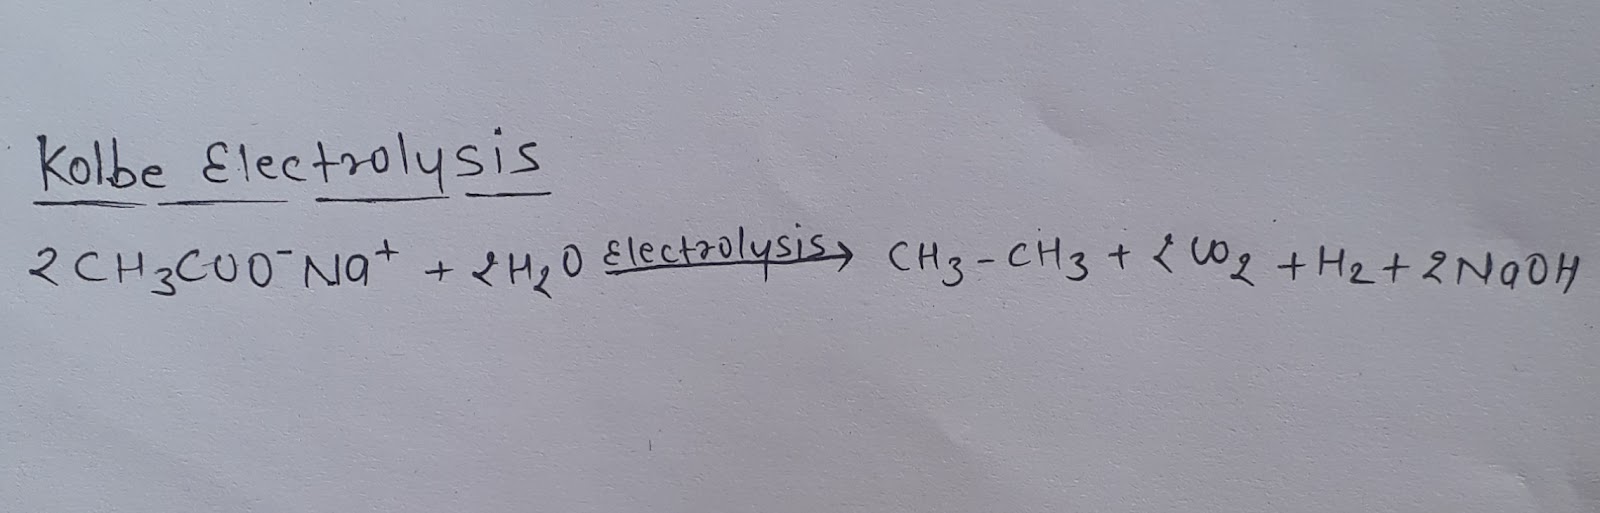 Kolbe Electrolysis
2CH₃COO⁻Na⁺ + 2H₂O Electrolysis→ CH₃-CH₃ + 2CO₂ + H₂ + 2NaOH